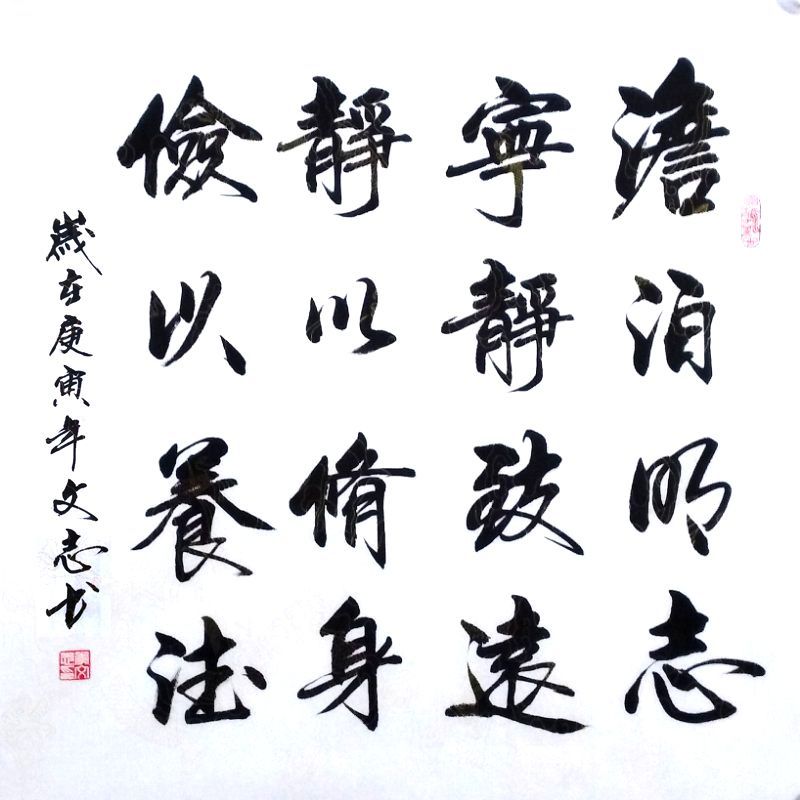 澹泊明志
寧靜致遠
靜以脩身
儉以養德
歲在庚寅年文志书